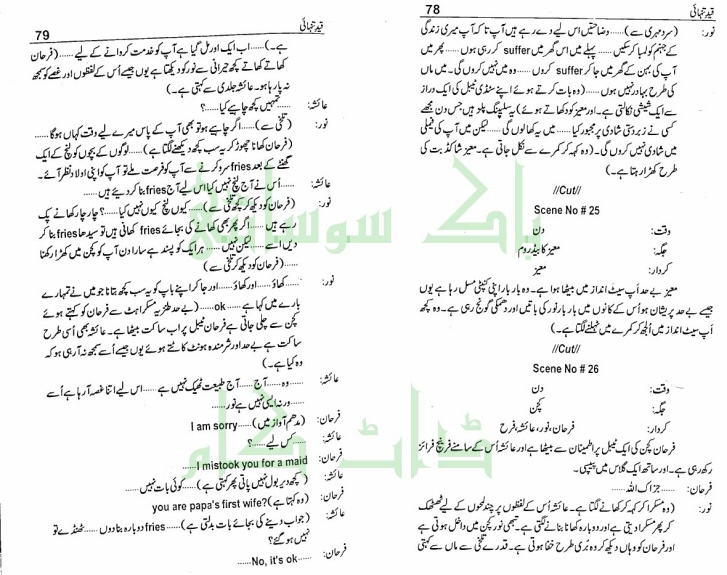 78
قید تنہائی
نور: (سرد مہری سے)...... وضاحتیں اس لیے دے رہے ہیں آپ تا کہ آپ میری زندگی
کے جہنم کو لمبا کر سکیں...... پہلے میں اس گھر میں suffer کر رہی ہوں...... پھر میں
آپ کی بہن کے گھر میں جا کر suffer کروں...... وہ میں نہیں کروں گی۔ میں ماں
کی طرح بہادر نہیں ہوں...... (وہ بات کرتے ہوئے اپنے سٹڈی ٹیبل کی ایک دراز
سے ایک شیشی نکالتی ہے۔ اور معیز کو دکھاتے ہوئے) یہ سلیپنگ پلز ہیں جس دن مجھے
کسی نے زبردستی شادی پر مجبور کیا...... میں یہ کھا لوں گی...... لیکن میں آپ کی فیملی
میں شادی نہیں کروں گی۔ (وہ کہہ کر کمرے سے نکل جاتی ہے۔ معیز شاکڈ بت کی
طرح کھڑا رہتا ہے۔)
//Cut//
Scene No # 25
وقت: دن
جگہ: معیز کا بیڈروم
کردار: معیز
معیز بے حد اَپ سیٹ انداز میں بیٹھا ہوا ہے۔ وہ بار بار اپنی کنپٹی مسل رہا ہے یوں
جیسے بے حد پریشان ہو اُس کے کانوں میں بار بار نور کی باتیں اور دھمکی گونج رہی ہے۔ وہ کچھ
اَپ سیٹ انداز میں اُٹھ کر کمرے میں ٹہلنے لگتا ہے۔)
//Cut//
Scene No # 26
وقت: دن
جگہ: کچن
کردار: فرحان، نور، عائشہ، فرح
فرحان کچن کی ایک ٹیبل پر اطمینان سے بیٹھا ہے اور عائشہ اُس کے سامنے فرنچ فرائز
رکھ رہی ہے۔ اور ساتھ ایک گلاس میں پیپسی۔
فرحان: جزاک اللہ......
نور: (وہ مسکرا کر کہہ کر کھانے لگتا ہے۔ عائشہ اُس کے لفظوں پر چند لمحوں کے لیے ٹھٹھک
کر پھر مسکرا دیتی ہے اور دوبارہ کھانا بنانے لگتی ہے۔ تبھی نور کچن میں داخل ہوتی ہے
اور فرحان کو وہاں دیکھ کر وہ بُری طرح خفا ہوتی ہے۔ قدرے تلخی سے ماں سے کہتی
79
قید تنہائی
ہے۔)...... اب ایک اور مل گیا ہے آپ کو خدمت کروانے کے لیے...... (فرحان
کھاتے کھاتے کچھ حیرانی سے نور کو دیکھتا ہے یوں جیسے اُس کے لفظوں اور غصے کو سمجھ
نہ پا رہا ہو۔ عائشہ جلدی سے کہتی ہے۔)
عائشہ: ......تمہیں کچھ چاہیے کیا......؟
نور: (تلخی سے)...... اگر چاہیے ہو تو بھی آپ کے پاس میرے لیے وقت کہاں ہوگا......
(فرحان کھانا چھوڑ کر یہ سب کچھ دیکھنے لگتا ہے)...... لوگوں کے بچوں کو لنچ کے ایک
گھنٹے کے بعد fries سرو کرنے سے آپ کو فرصت ملے تو آپ کو اپنی اولاد نظر آئے۔
عائشہ: ......اُس نے آج لنچ نہیں کیا اس لیے آج fries بنا کر دیئے ہیں......
نور: (فرحان کو دیکھ کر کچھ تلخی سے)...... کیوں لنچ کیوں نہیں کیا......؟ چار چار کھانے پک
رہے ہیں...... اگر پھر بھی کھانے کی بجائے fries کھانی ہیں تو سیدھا fries بنا کر
دیں اسے...... لیکن نہیں...... ہر ایک کو پسند ہے سارا دن آپ کو کچن میں کھڑا رکھنا
......(فرحان کو دیکھ کر تلخی سے)
نور: ......کھاؤ......اور کھاؤ......اور جا کر اپنے باپ کو یہ سب کچھ بتانا جو میں نے تمہارے
بارے میں کہا ہے...... ok......(بے حد طنزیہ مسکراہٹ سے فرحان کو کہتے ہوئے
کچن سے چلی جاتی ہے فرحان ٹیبل پر اب ساکت بیٹھا ہے۔ عائشہ بھی اُسی طرح
ساکت ہے بے حد اور شرمندہ ہونٹ کاٹتے ہوئے یوں جیسے اُسے سمجھ نہ آ رہی ہو کہ
وہ کیا ہے۔)
عائشہ: ......وہ......آج......آج طبیعت ٹھیک نہیں ہے......اس لیے اتنا غصہ آ رہا ہے اُسے
......ورنہ ایسی نہیں ہے نور......
فرحان: (مدھم آواز میں)...... I am sorry
عائشہ: ......کس لیے......؟
فرحان: ......I mistook you for a maid
عائشہ: (کچھ دیر بول نہیں پاتی پھر کہتی ہے)...... کوئی بات نہیں......
فرحان: (وہ کہتا ہے) you are papa's first wife?
عائشہ: (جواب دینے کی بجائے بات بدلتی ہے)...... fries دوبارہ بنا دوں...... ٹھنڈے تو
نہیں ہو گئے؟
فرحان: ......No, it's ok......
پاک سوسائٹی
ڈاٹ کام